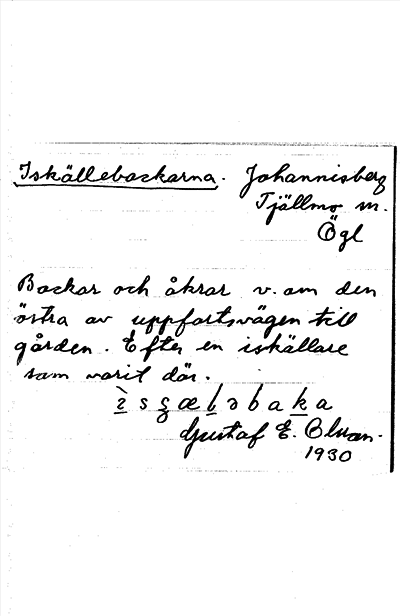 Iskällebackarna. Johannisberg
Tjällmo sn.
Ögl
Backar och åkrar v. om den
östra av uppfartsvägen till
gården. Efter en iskällare
som varit där.
Gustaf E. Bluan.
1930